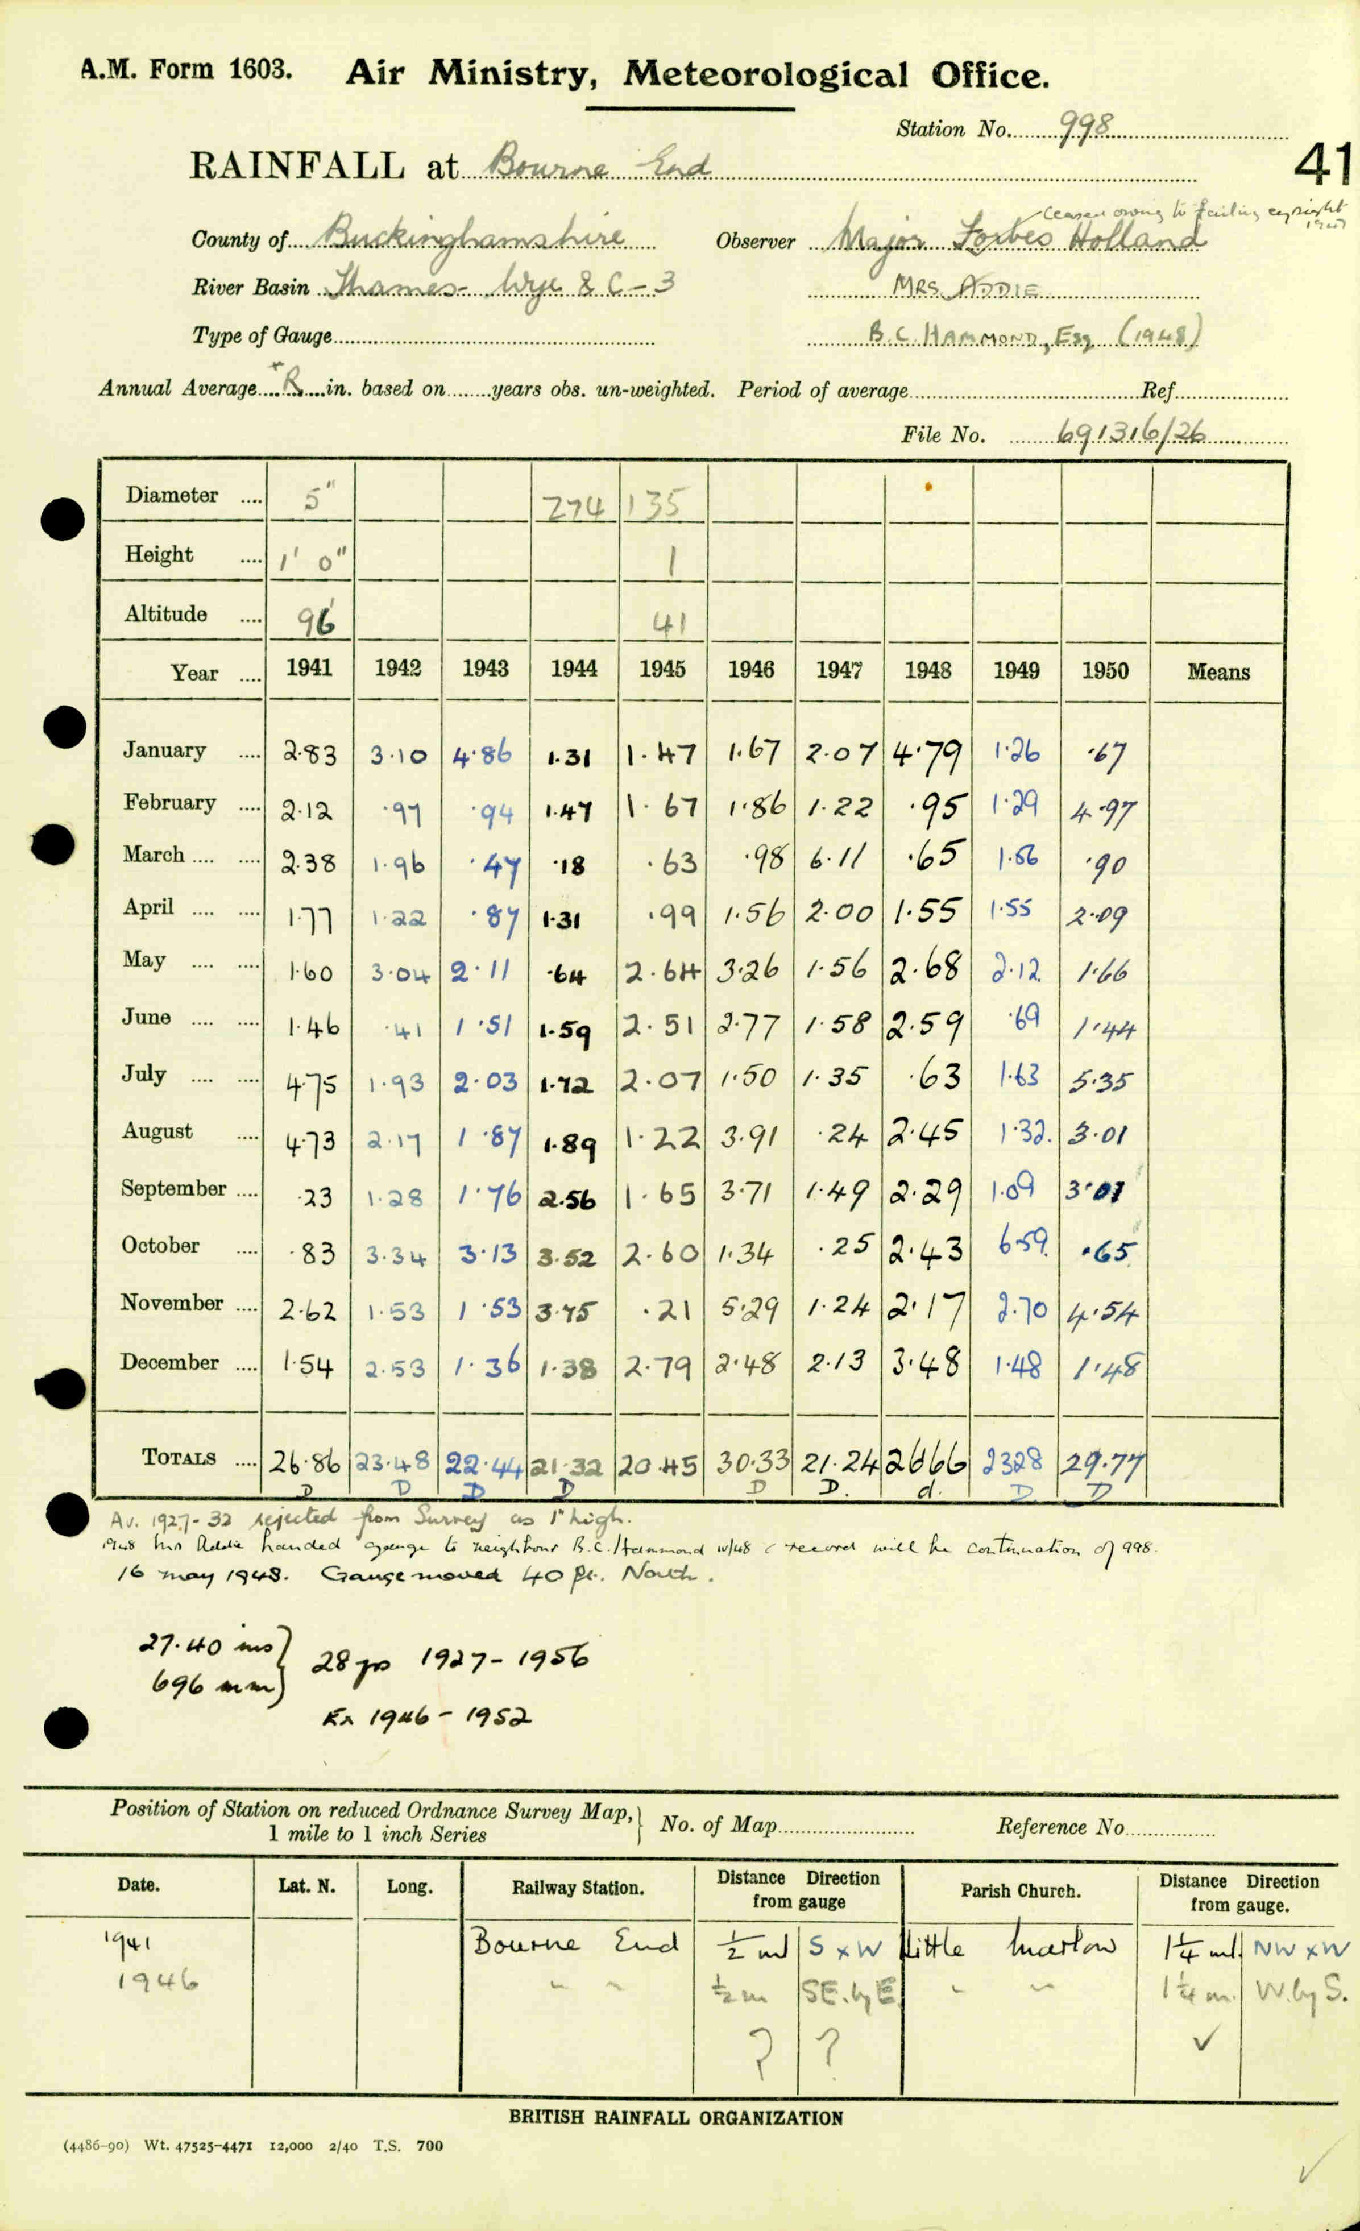 A.M. Form 1603. Air Ministry, Meteorological Office.
Station No. 998
41
RAINFALL at Bourne End
ceased owing to failing eyesight
County of Buckinghamshire Observer Major Forbes Holland
River Basin Thames - Wye & C - 3 MRS ADDIE
Type of Gauge B.C. HAMMOND, Esq (1948)
Annual Average R in. based on years obs. un-weighted. Period of average Ref
File No. 691316/26
Diameter 5" 274 135
Height 1' 0" 1
Altitude 96' 41
Year 1941 1942 1943 1944 1945 1946 1947 1948 1949 1950 Means
January 2.83 3.10 4.86 1.31 1.47 1.67 2.07 4.79 1.26 .67
February 2.12 .97 .94 1.47 1.67 1.86 1.22 .95 1.29 4.97
March 2.38 1.96 .47 .18 .63 .98 6.11 .65 1.56 .90
April 1.77 1.22 .87 1.31 .99 1.56 2.00 1.55 1.55 2.09
May 1.60 3.04 2.11 .64 2.64 3.26 1.56 2.68 2.12 1.66
June 1.46 .41 1.51 1.59 2.51 2.77 1.58 2.59 .69 1.44
July 4.75 1.93 2.03 1.72 2.07 1.50 1.35 .63 1.63 5.35
August 4.73 2.17 1.87 1.89 1.22 3.91 .24 2.45 1.32 3.01
September .23 1.28 1.76 2.56 1.65 3.71 1.49 2.29 1.09 3.01
October .83 3.34 3.13 3.52 2.60 1.34 .25 2.43 6.59 .65
November 2.62 1.53 1.53 3.75 .21 5.29 1.24 2.17 2.70 4.54
December 1.54 2.53 1.36 1.38 2.79 2.48 2.13 3.48 1.48 1.48
TOTALS 26.86 23.48 22.44 21.32 20.45 30.33 21.24 26.66 23.28 29.77
D D D D D D. d. D D
Av. 1927-32 rejected from Survey as 1' high.
1948 Mrs Addie handed gauge to neighbour B.C. Hammond record will be continuation of 998.
16 May 1948. Gauge moved 40 ft. North.
27.40 ins } 28 yrs 1927-1956
696 mm
Ex 1946-1952
Position of Station on reduced Ordnance Survey Map, } No. of Map Reference No
1 mile to 1 inch Series
Date. Lat. N. Long. Railway Station. Distance Direction from gauge Parish Church. Distance Direction from gauge.
1941 Bourne End ½ ml S x W Little Marlow 1¼ ml. NW x W
1946 " " ½ m SE. by E. " " 1¼ m. W. by S.
? ? ✓
BRITISH RAINFALL ORGANIZATION
(4486-90) Wt. 47525-4471 12,000 2/40 T.S. 700
✓